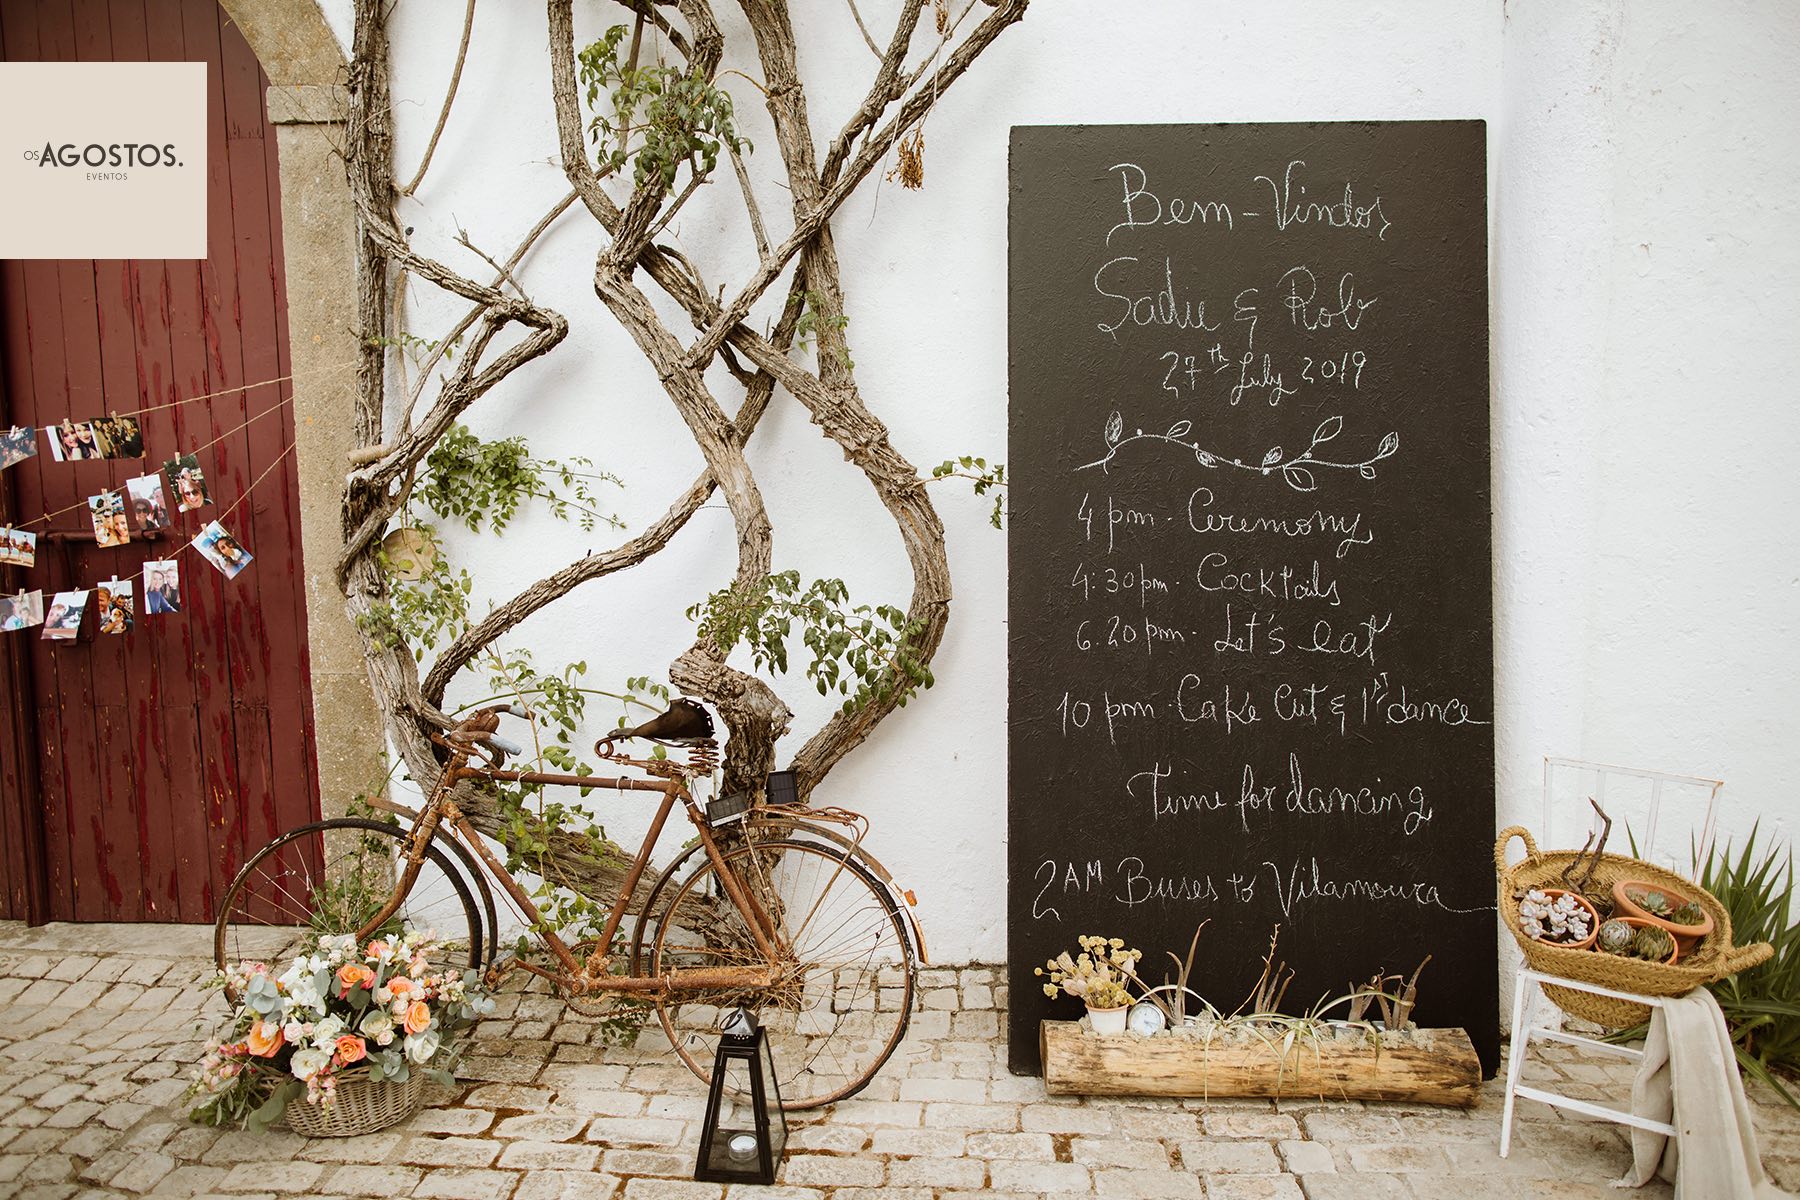 OS AGOSTOS.
EVENTOS
Bem-Vindos
Sadie & Rob
27th July 2019
4 pm. Ceremony
4:30pm. Cocktails
6.20pm. Let's eat
10 pm. Cake Cut & 1st dance
Time for dancing
2AM Buses to Vilamoura